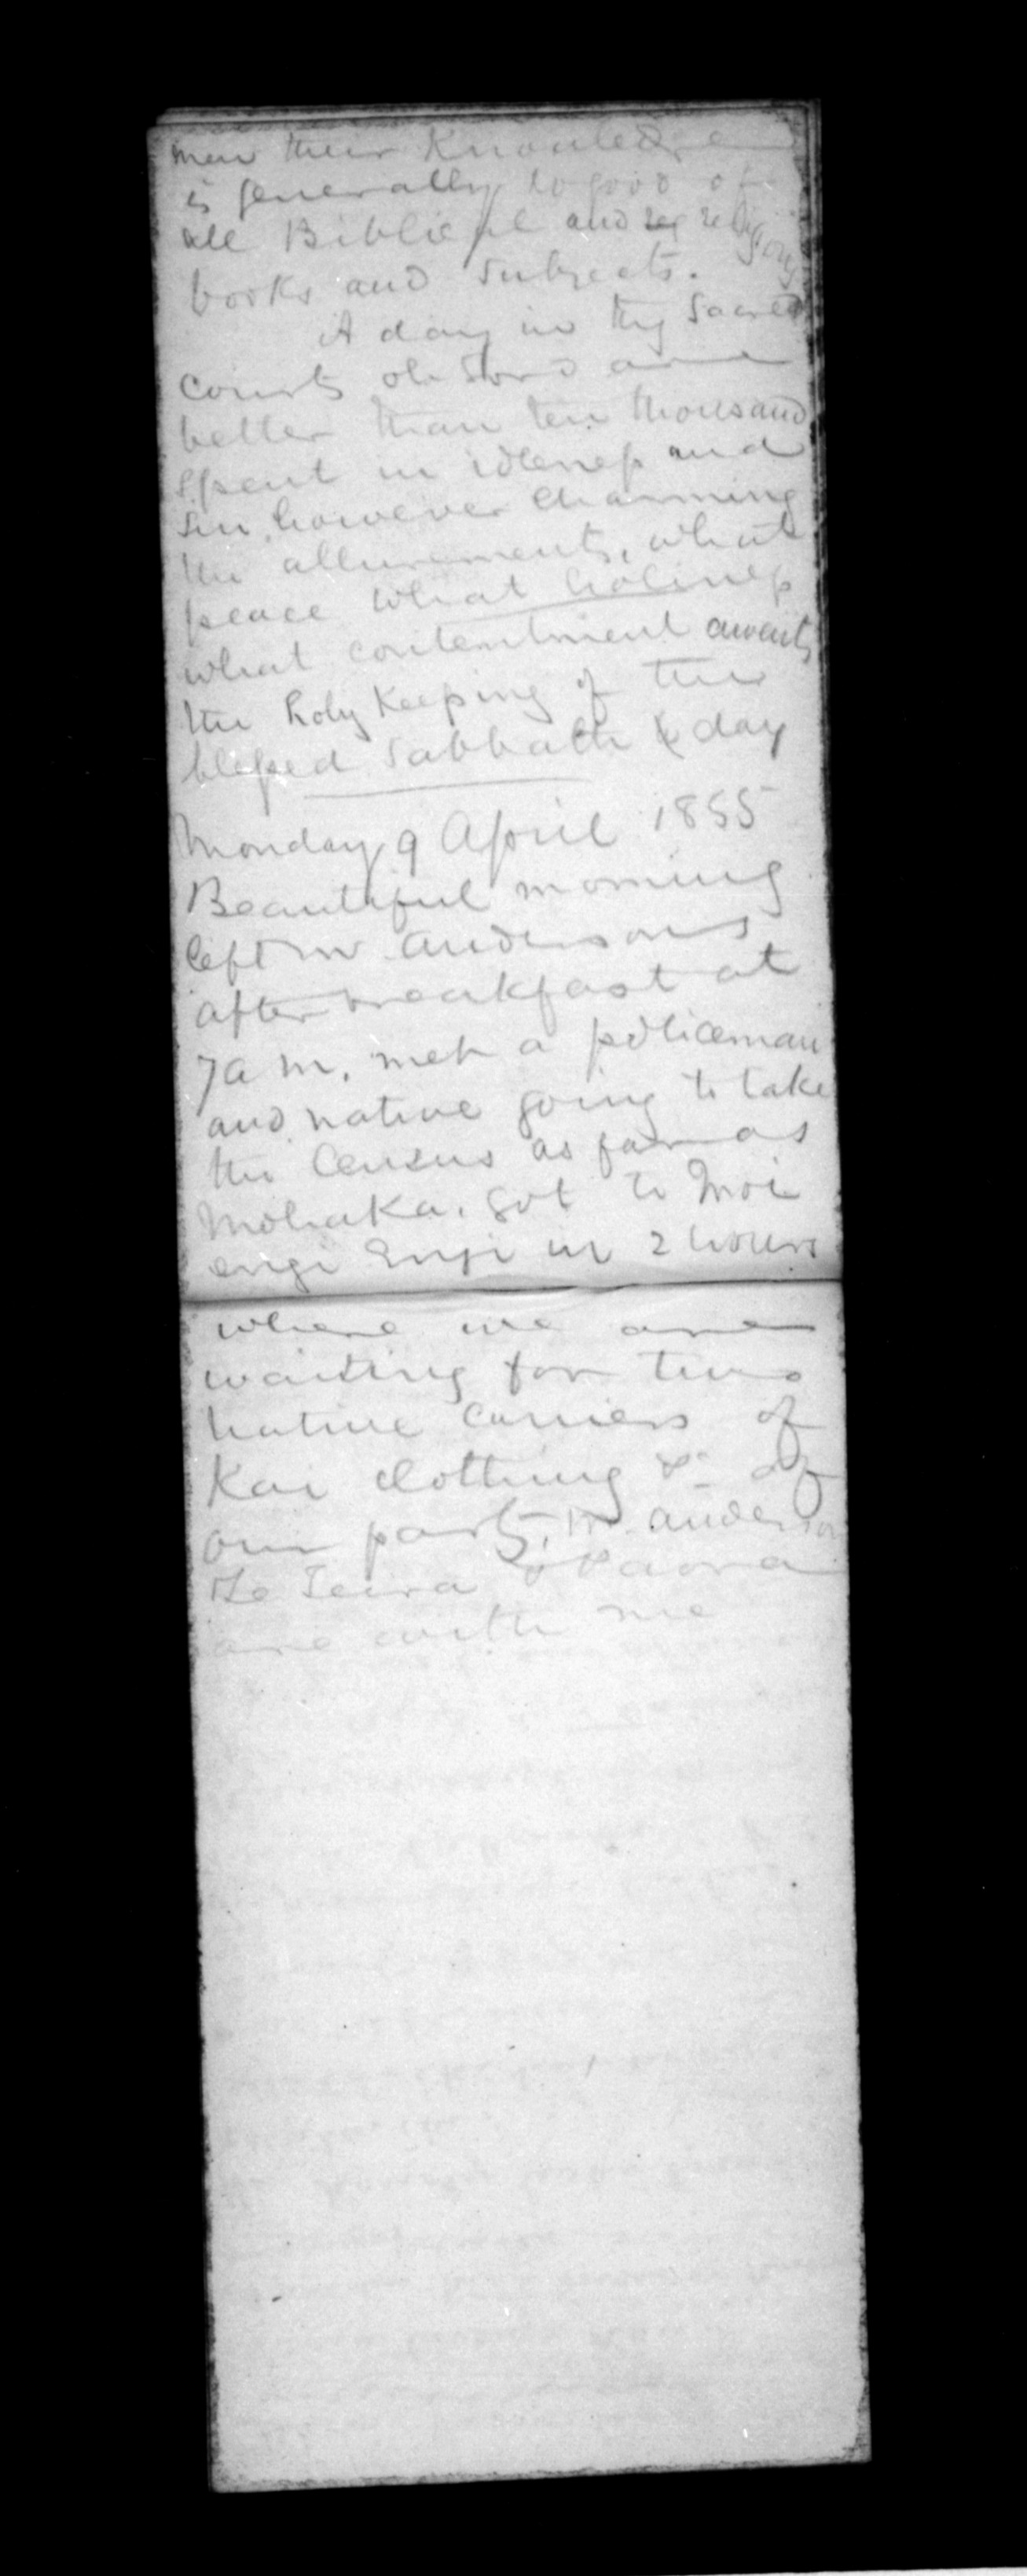 men their Knowledge
is generally so good of
all Biblical and reg religious
books and subjects.
A day in thy sacred
courts oh Lord are
better than ten thousand
spent in idleness and
sin, however charming
the allurements, what
peace what holiness
what contentment awaits
the holy Keeping of thy
blessed Sabbath day
Monday 9 April 1855
Beautiful morning
left Mr Andersons
after breakfast at
7 a m. met a policeman
and native going to take
the Census as far as
Mohaka. got to Moi
engi Engi in 2 hours
where we are
waiting for two
native carriers of
Kai clothing &c of
our party, Mr. Anderson
Te Teira & Paora
are with me